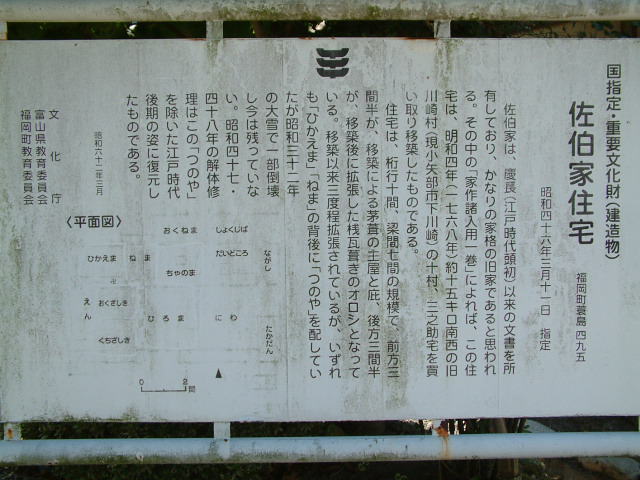 国指定・重要文化財（建造物）
佐伯家住宅
福岡町蓑島四九五
昭和四十六年三月十一日 指定
佐伯家は、慶長（江戸時代頭初）以来の文書を所
有しており、かなりの家格の旧家であると思われ
る。その中の「家作諸入用一巻」によれば、この住
宅は、明和四年（一七六八年）約十五キロ南西の旧
川崎村（現小矢部市下川崎）の十村、三之助宅を買
い取り移築したものである。
住宅は、桁行十間、梁間七間の規模で、前方三
間半が、移築による茅葺の主屋と庇、後方三間半
が、移築後に拡張した桟瓦葺きのオロシとなって
いる。移築以来三度程拡張されているが、いずれ
も「ひかえま」「ねま」の背後に「つのや」を配してい
たが昭和三十二年
の大雪で一部倒壊
し今は残っていな
い。昭和四十七・
四十八年の解体修
理はこの「つのや」
を除いた江戸時代
後期の姿に復元し
たものである。
昭和六十二年三月
文化庁
富山県教育委員会
福岡町教育委員会
〈平面図〉
おくねま
しょくじば
ひかえま
ねま
だいどころ
ながし
ちゃのま
えん
おくざしき
ひろま
にわ
たかだん
くちざしき
0 2間